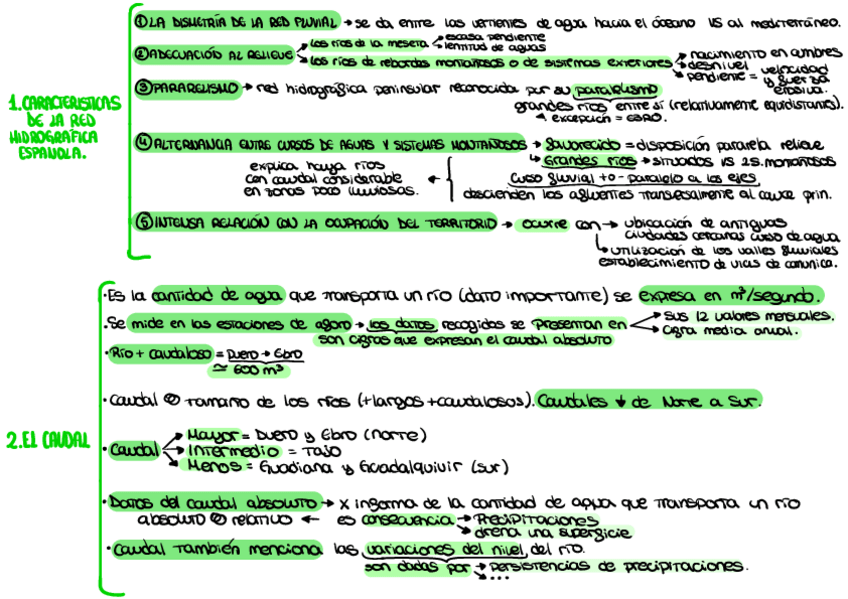 1. CARACTERISTICAS DE LA RED HIDROGRÁFICA ESPAÑOLA.
① LA DISIMETRÍA DE LA RED FLUVIAL → se da entre las vertientes de agua hacia el óceano VS al mediterráneo.
② ADECUACIÓN AL RELIEVE → los ríos de la meseta → escasa pendiente
→ lentitud de aguas
→ los ríos de rebordes montañosos o de sistemas exteriores → nacimiento en cumbres
→ desnivel
→ pendiente = velocidad y fuerza erosiva.
③ PARARELISMO → red hidrográfica peninsular reconocida por su paralelismo
grandes ríos entre sí (relativamente equidistantes).
excepción = EBRO.
④ ALTERNANCIA ENTRE CURSOS DE AGUAS Y SISTEMAS MONTAÑOSOS → favorecido = disposición paralela relieve
↳ Grandes ríos → situados VS 2S. montañosos
curso fluvial +o- paralelo a los ejes
descienden los afluentes transversalmente al cauce prin.
explica haya ríos
con caudal considerable
en zonas poco lluviosas.
⑤ INTENSA RELACIÓN CON LA OCUPACIÓN DEL TERRITORIO → ocurre con → ubicación de antiguas
ciudades cercanas curso de agua
↳ utilización de los valles fluviales
establecimiento de vías de comunica.
2. EL CAUDAL
· Es la cantidad de agua que transporta un río (dato importante) se expresa en m³/segundo.
· Se mide en las estaciones de aforo → los datos recogidos se presentan en → sus 12 valores mensuales.
→ cifra media anual.
son cifras que expresan el caudal absoluto
· Río + caudaloso = Duero → Ebro
≃ 600 m³
· Caudal tamaño de los ríos (+largos +caudalosos). Caudales ↓ de Norte a Sur.
· Caudal → Mayor = Duero y Ebro (norte)
→ Intermedio = Tajo
→ Menos = Guadiana y Guadalquivir (sur)
· Datos del caudal absoluto → X informa de la cantidad de agua que transporta un río
absoluto relativo ← es consecuencia → Precipitaciones
→ drena una superficie
· Caudal también menciona las variaciones del nivel del río.
son dadas por → persistencias de precipitaciones.
→ ...